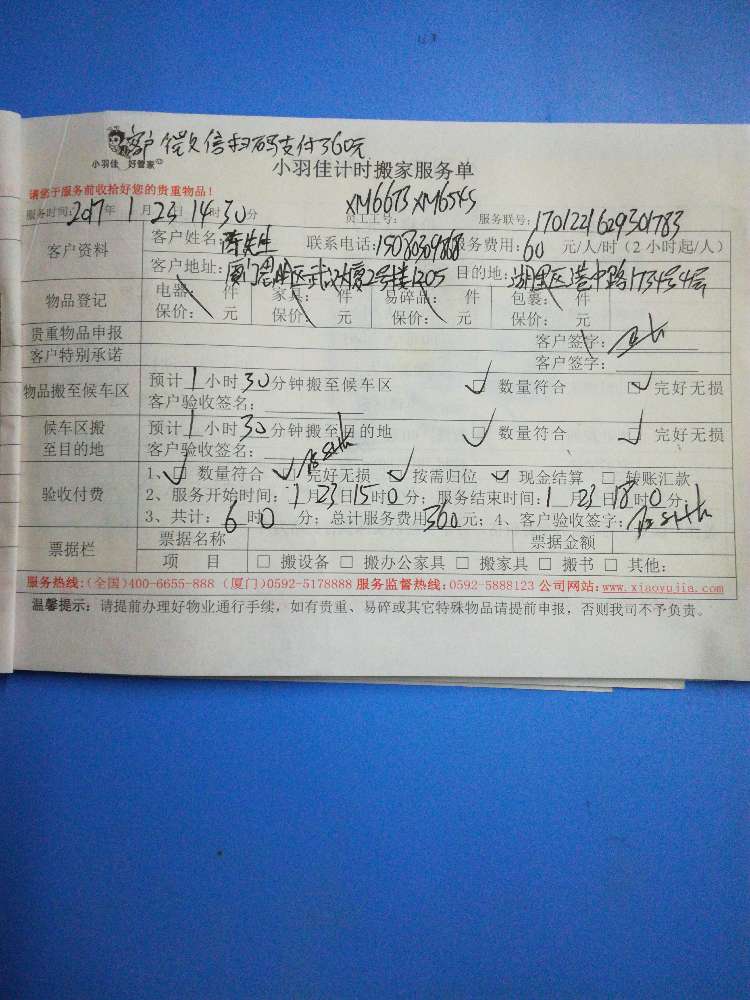 客户微信扫码支付360元
小羽佳 好管家
小羽佳计时搬家服务单
请您于服务前收拾好您的贵重物品!
服务时间:2017年1月23日14时30分 员工工号: XM6673 XM6545 服务联号:1701221629301783
客户资料 客户姓名:陈先生 联系电话: 服务费用:60元/人/时(2小时起/人)
客户地址:厦门思明区武汉大厦2号楼1205 目的地:湖里区港中路1734号4层
物品登记 电器: 件 家具: 件 易碎品: 件 包裹: 件
保价: 元 保价: 元 保价: 元 保价: 元
贵重物品申报 客户签字:
客户特别承诺 客户签字:
物品搬至候车区 预计1小时30分钟搬至候车区 □ 数量符合 □ 完好无损
客户验收签名:
候车区搬至目的地 预计1小时30分钟搬至目的地 □ 数量符合 □ 完好无损
客户验收签名:
验收付费 1、□ 数量符合 □ 完好无损 □ 按需归位 □ 现金结算 □ 转账汇款
2、服务开始时间:1月23日15时0分;服务结束时间:1月23日18时0分;
3、共计:6时0分;总计服务费用360元;4、客户验收签字:
票据栏 票据名称 票据金额
项 目 □ 搬设备 □ 搬办公家具 □ 搬家具 □ 搬书 □ 其他:
服务热线:(全国)400-6655-888 (厦门)0592-5178888 服务监督热线:0592-5888123 公司网站:www.xiaoyujia.com
温馨提示:请提前办理好物业通行手续,如有贵重、易碎或其它特殊物品请提前申报,否则我司不予负责。